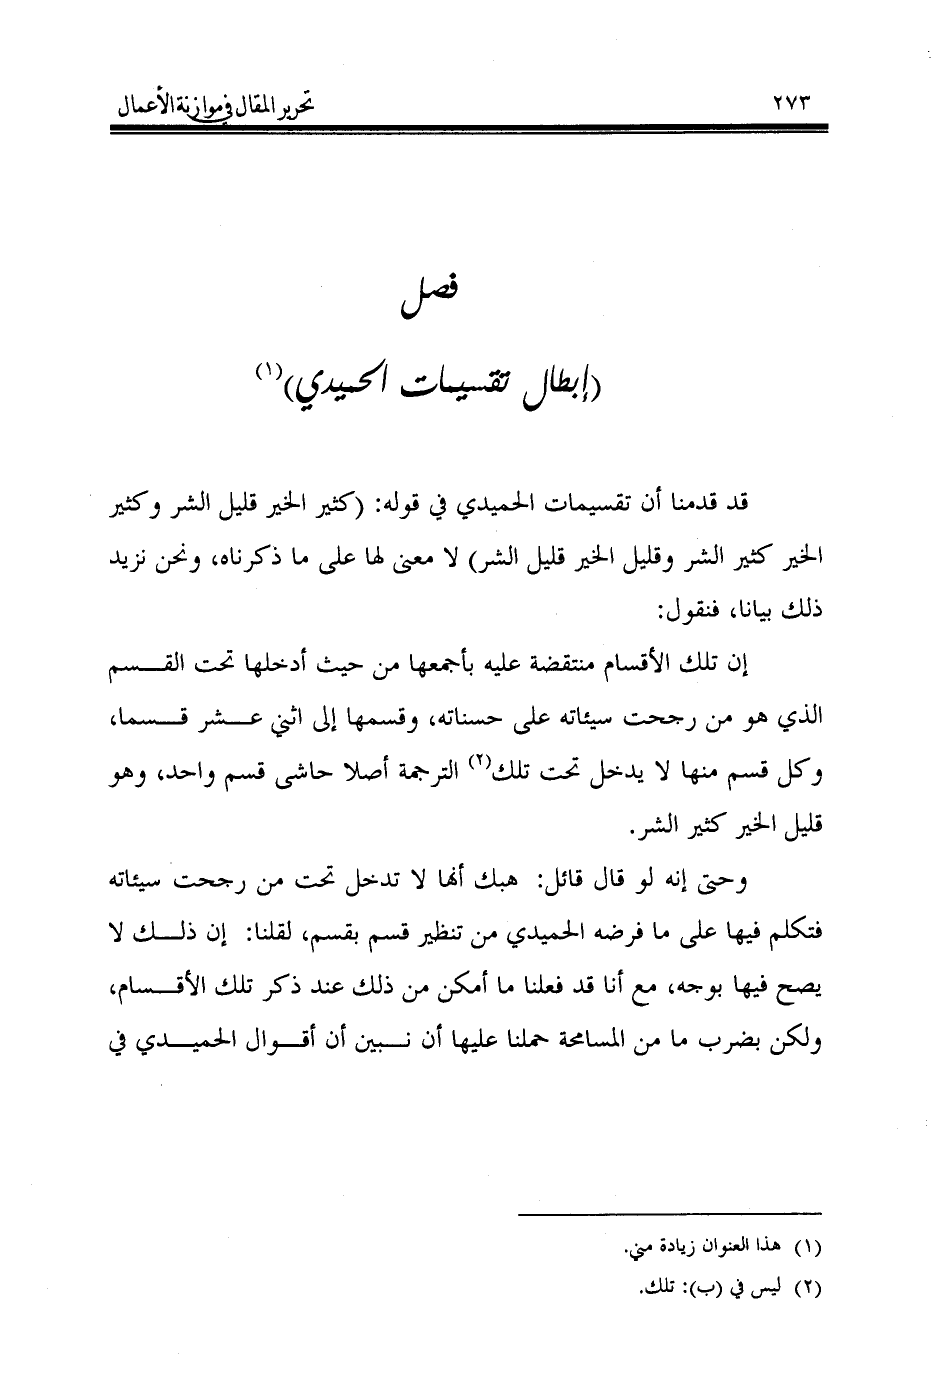 ٢٧٣ تحرير المقال في موازنة الأعمال
فصل
(إبطال تقسيمات الحميدي)(١)
قد قدمنا أن تقسيمات الحميدي في قوله: (كثير الخير قليل الشر وكثير
الخير كثير الشر وقليل الخير قليل الشر) لا معنى لها على ما ذكرناه، ونحن نزيد
ذلك بيانا، فنقول:
إن تلك الأقسام منتقضة عليه بأجمعها من حيث أدخلها تحت القسم
الذي هو من رجحت سيئاته على حسناته، وقسمها إلى اثني عشر قسما،
وكل قسم منها لا يدخل تحت تلك(٢) الترجمة أصلا حاشى قسم واحد، وهو
قليل الخير كثير الشر.
وحتى إنه لو قال قائل: هبك أنها لا تدخل تحت من رجحت سيئاته
فتكلم فيها على ما فرضه الحميدي من تنظير قسم بقسم، لقلنا: إن ذلك لا
يصح فيها بوجه، مع أنا قد فعلنا ما أمكن من ذلك عند ذكر تلك الأقسام،
ولكن بضرب ما من المسامحة حملنا عليها أن نبين أن أقوال الحميدي في
(١) هذا العنوان زيادة مني.
(٢) ليس في (ب): تلك.